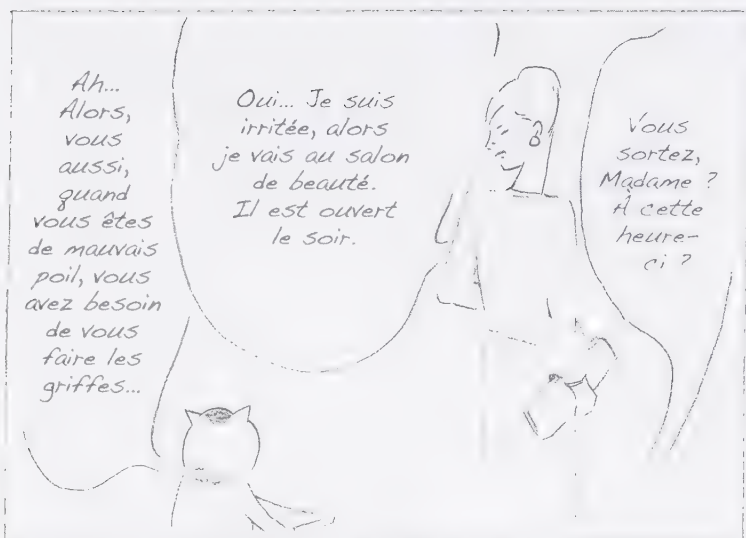 Vous
sortez,
Madame ?
À cette
heure-
ci ?
Oui... Je suis
irritée, alors
je vais au salon
de beauté.
Il est ouvert
le soir.
Ah...
Alors,
vous
aussi,
quand
vous êtes
de mauvais
poil, vous
avez besoin
de vous
faire les
griffes...